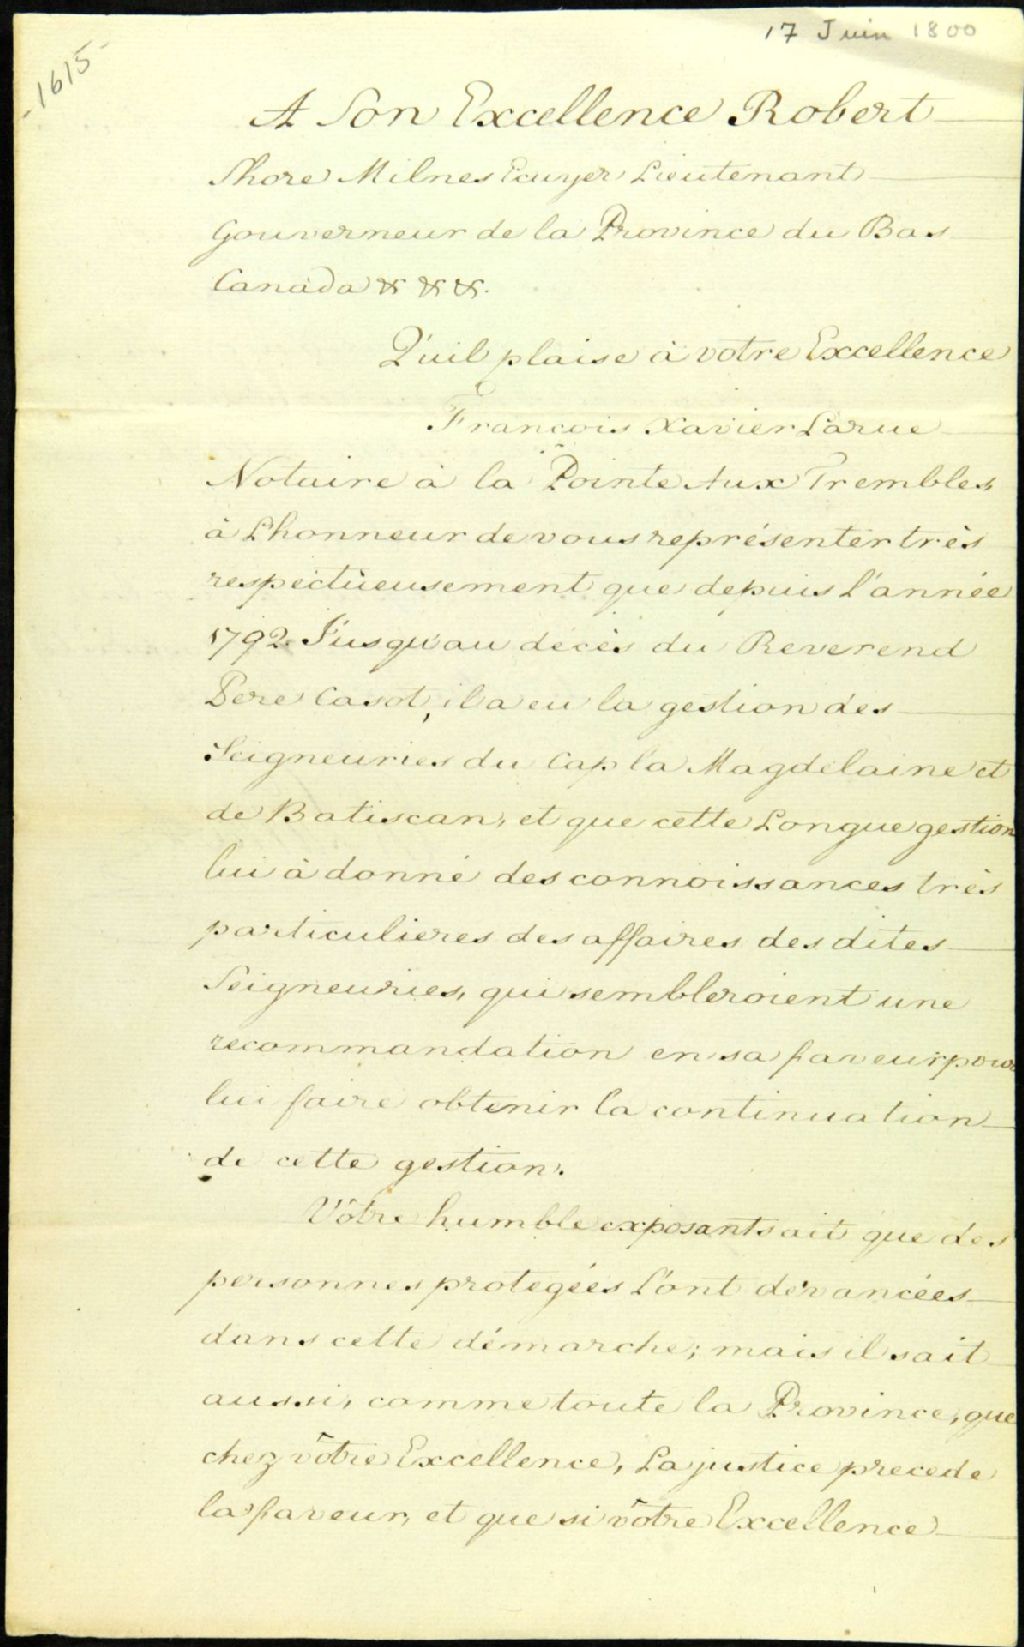 17 Juin 1800
-1615-
A Son Excellence Robert
Shore Milnes Ecuyer Lieutenant
Gouverneur de la Province du Bas
Canada & & &.
Qu'il plaise à votre Excellence
Francois Xavier Larue
Notaire à la Pointe Aux Trembles
à L'honneur de vous représenter très
respectueusement que depuis L'année
1792. Jusqu'au décès du Reverend
Pere Casot, il a eu la gestion des
Seigneuries du Cap la Magdelaine et
de Batiscan, et que cette Longue gestion
lui à donné des connoissances très
particulieres des affaires des dites
Seigneuries, qui sembleroient une
recommandation en sa faveur pour
lui faire obtenir la continuation
de cette gestion.
Vôtre humble exposant sait que des
personnes protegées L'ont dévancées
dans cette démarche; mais il sait
aussi, comme toute la Province, que
chez vôtre Excellence, La justice precede
la faveur, et que si vôtre Excellence